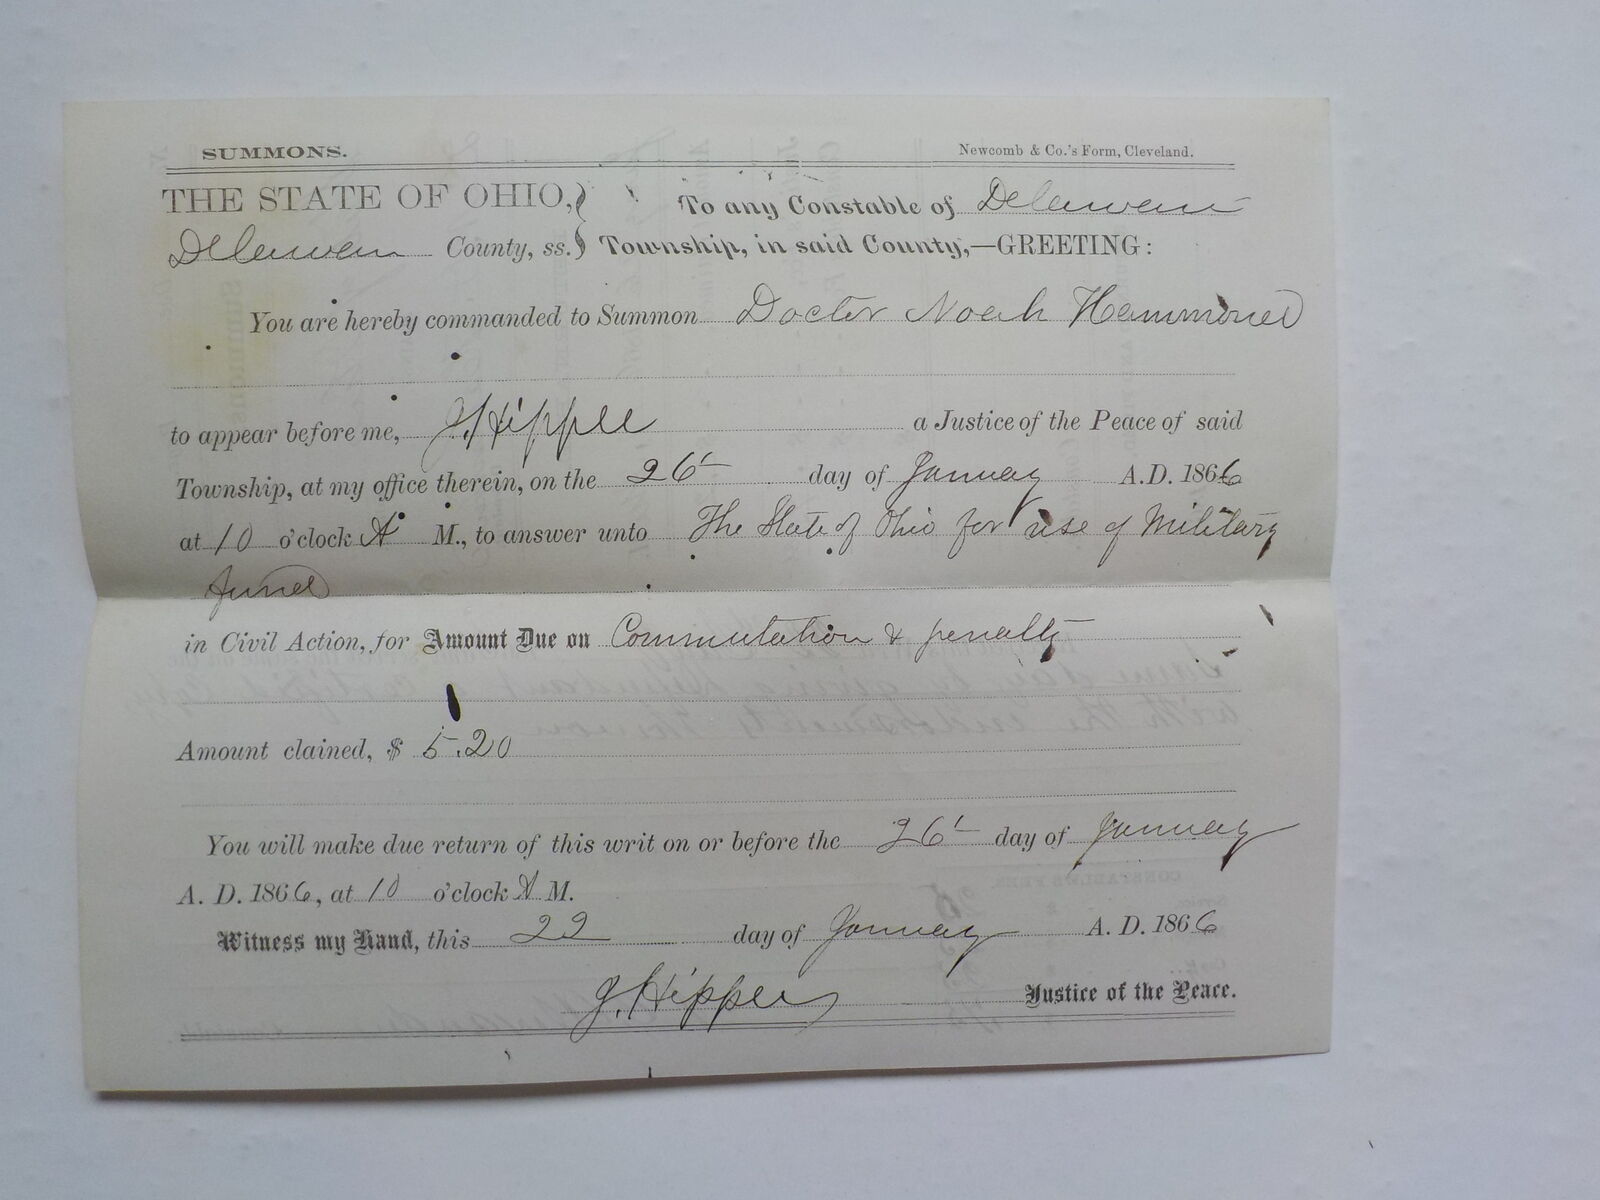 SUMMONS. Newcomb & Co.'s Form, Cleveland.
THE STATE OF OHIO, } To any Constable of Delaware
Delaware County, ss. } Township, in said County,—GREETING:
You are hereby commanded to Summon Doctor Noah Hammond
to appear before me, J. Hipple a Justice of the Peace of said
Township, at my office therein, on the 26 day of January A.D. 1866
at 10 o'clock A M., to answer unto The State of Ohio for use of Military
fund
in Civil Action, for Amount Due on Commutation & penalty
Amount claimed, $ 5.20
You will make due return of this writ on or before the 26 day of January
A. D. 1866, at 10 o'clock A M.
Witness my Hand, this 22 day of January A. D. 1866
J. Hipple Justice of the Peace.